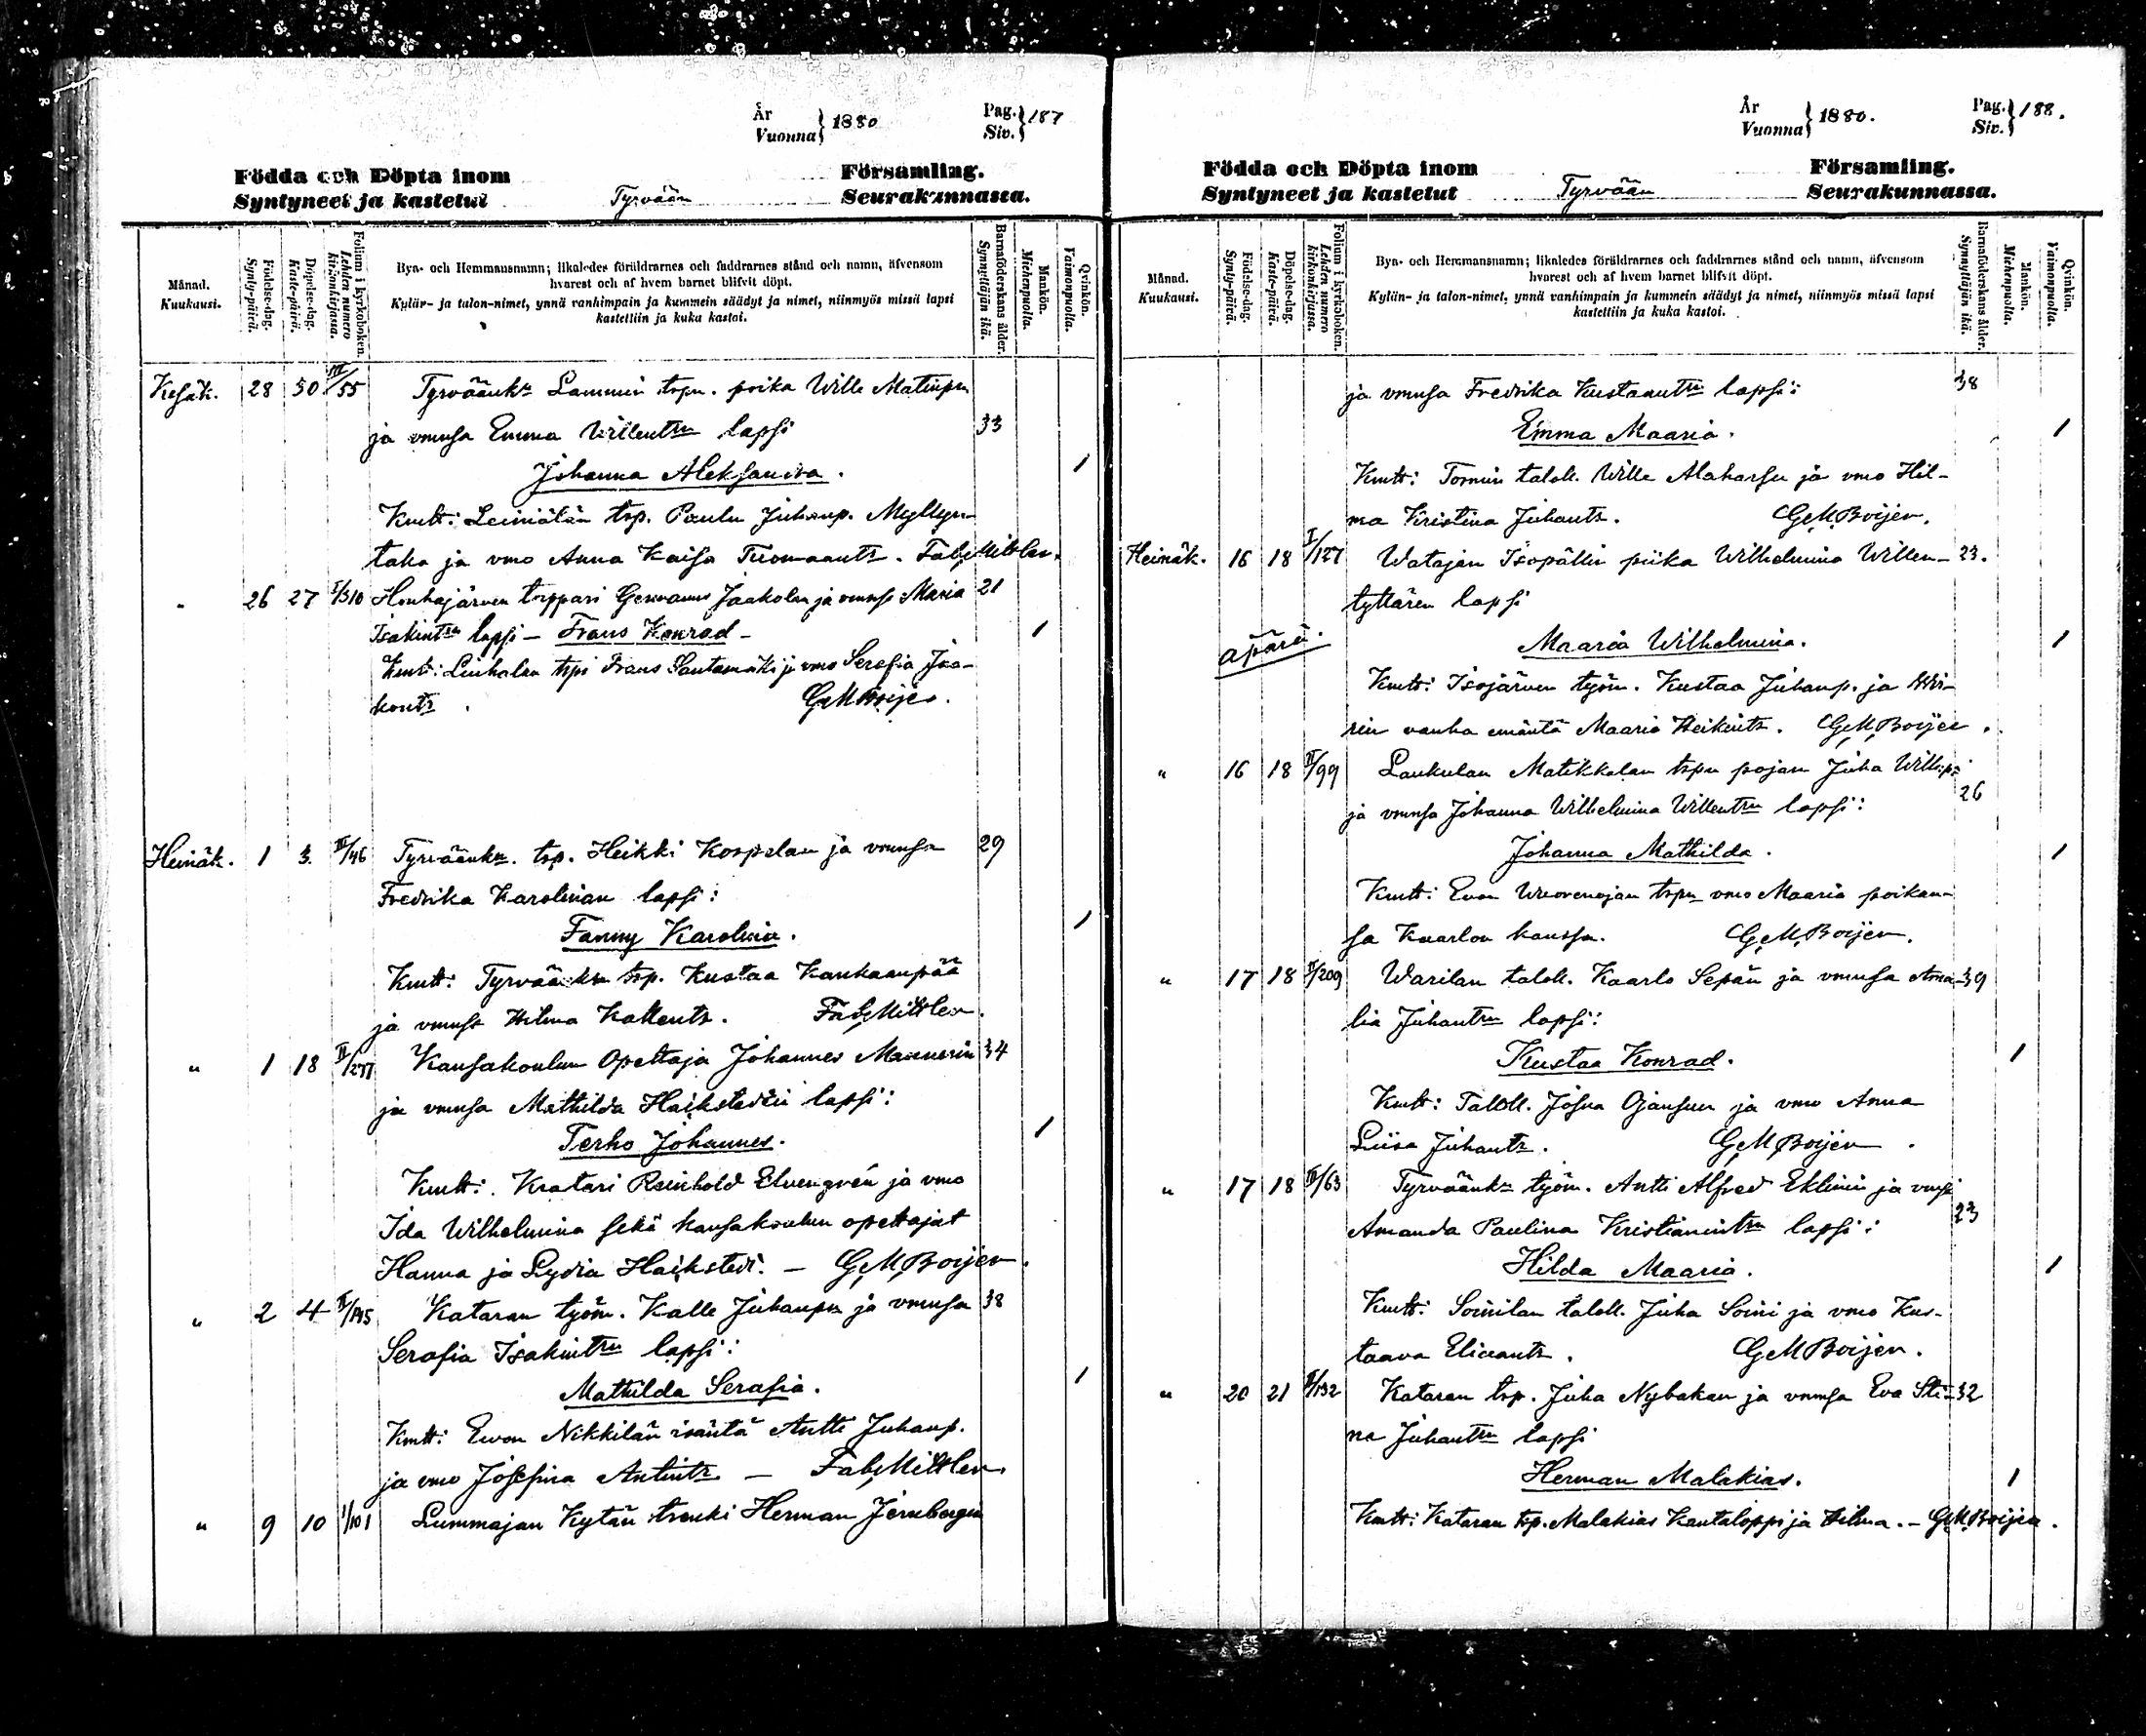 År
Vuonna } 1880
Pag.
Siv. } 187
Födda och Döpta inom Församling.
Syntyneet ja kastetut Tyrvään Seurakunnassa.
Månad.
Kuukausi.
Födelse-dag.
Synty-päivä.
Döpelse-dag.
Kaste-päivä.
Folium i kyrkoboken.
Lehden numero kirkonkirjassa.
Bya- och Hemmansnamn; likaledes föräldrarnes och faddrarnes stånd och namn, äfvensom
hvarest och af hvem barnet blifvit döpt.
Kylän- ja talon-nimet, ynnä vanhimpain ja kummein säädyt ja nimet, niinmyös missä lapsi
kastettiin ja kuka kastoi.
Barnaföderskans ålder.
Synnyttäjän ikä.
Mankön.
Miehenpuolia.
Qvinkön.
Vaimonpuolia.
Kesäk. 28 30 III/55 Tyrväänk. Lammin trpn. poika Wille Matinpn
ja vmnsa Emma Willentrn lapsi 33
Johanna Aleksandra. 1
Kmtt: Leiniälän trp. Paulu Juhanp. Myllyn-
taka ja vmo Anna Kaisa Tuomaantr. Fab. Mittler.
" 26 27 I/310 Houhajärven torppari Germanus Jaakolan ja vmnsa Maria 21
Isakintrn lapsi - Frans Konrad - 1
Kmtt: Liuhalan trpi Frans Santamäki ja vmo Serafia Jaa-
kontr. G.M.Boijer.
Heinäk. 1 3 III/46 Tyrväänkn. trp. Heikki Kospelan ja vmnsa 29
Fredrika Karolinan lapsi:
Fanny Karolina. 1
Kmtt: Tyrväänkn trp. Kustaa Kankaanpää
ja vmnsa Hilma Kallentr. Fab. Mittler.
" 1 18 II/277 Kansakoulun Opettaja Johannes Mannerin 34
ja vmnsa Mathilda Hajkstedin lapsi:
Terho Johannes. 1
Kmtt: Kratari Reinhold Elvengrén ja vmo
Ida Wilhelmina sekä kansakoulun opettajat
Hanna ja Lydia Hajksted. - G.M.Boijer.
" 2 4 II/195 Kataran työm. Kalle Juhanpn ja vmnsa 38
Serafia Isakintrn lapsi:
Mathilda Serafia. 1
Kmtt: Ewon Nikkilän isäntä Antti Juhanp.
ja vmo Josefina Antintr. - Fab. Mittler.
" 9 10 I/101 Lummajan Kytän trenki Herman Jernbergin
År
Vuonna } 1880.
Pag.
Siv. } 188.
Födda och Döpta inom Församling.
Syntyneet ja kastetut Tyrvään Seurakunnassa.
Månad.
Kuukausi.
Födelse-dag.
Synty-päivä.
Döpelse-dag.
Kaste-päivä.
Folium i kyrkoboken.
Lehden numero kirkonkirjassa.
Bya- och Hemmansnamn; likaledes föräldrarnes och faddrarnes stånd och namn, äfvensom
hvarest och af hvem barnet blifvit döpt.
Kylän- ja talon-nimet, ynnä vanhimpain ja kummein säädyt ja nimet, niinmyös missä lapsi
kastettiin ja kuka kastoi.
Barnaföderskans ålder.
Synnyttäjän ikä.
Mankön.
Miehenpuolia.
Qvinkön.
Vaimonpuolia.
ja vmnsa Fredrika Kustaantrn lapsi: 38
Emma Maaria. 1
Kmtt: Tornin taloll. Wille Alaharsu ja vmo Hil-
ma Kristina Juhantr. G.M.Boijer.
Heinäk. 16 18 I/127 Watajan Isopällin piika Wilhelmina Willen- 23.
tyttären lapsi
äpärä. Maaria Wilhelmina. 1
Kmtt: Isojärven työm. Kustaa Juhanp. ja
rin vanha emäntä Maaria Heikintr. G.M.Boijer.
" 16 18 II/99 Laukulan Matikkalan trpn pojan Juha Willep.
ja vmnsa Johanna Wilhelmina Willentrn lapsi: 26
Johanna Mathilda. 1
Kmtt: Evon Wuorenojan trpn vmo Maaria poikan-
sa Kaarlon kanssa. G.M.Boijer.
" 17 18 II/209 Warilan taloll. Kaarlo Sepän ja vmnsa Ama- 39
lia Juhantrn lapsi:
Kustaa Konrad. 1
Kmtt: Taloll. Josua Ojansuu ja vmo Anna
Liisa Juhantr. G.M.Boijer.
" 17 18 III/63 Tyrväänk. työm. Antti Alfred Eklinin ja vmsa
Amanda Paulina Kristianintrn lapsi: 23
Hilda Maaria. 1
Kmtt: Soinilan taloll. Juha Soini ja vmo Kus-
taava Eliaantr. G.M.Boijer.
" 20 21 II/192 Kataran trp. Juha Nybakan ja vmnsa Eva Sti- 32
na Juhantrn lapsi
Herman Malakias. 1
Kmtt: Kataran trp. Malakias Kantaloppi ja Hilma. - G.M.Boijer.